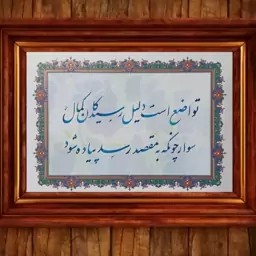 تواضع است دلیل رسیدگان کمال
سوار چونکه به مقصد رسد پیاده شود